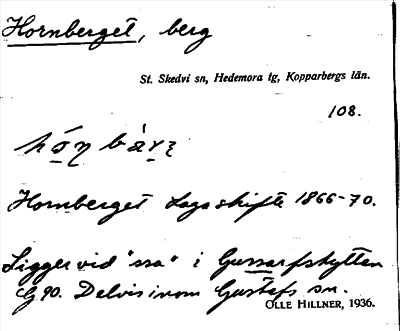 Hornberget, berg
St. Skedvi sn, Hedemora tg, Kopparbergs län.
108.
Hornberget Laga skifte 1866-70.
Ligger vid "ssa" i Gussarfshyttan
Cg 90. Delvis inom Gustafs sn.
OLLE HILLNER, 1936.